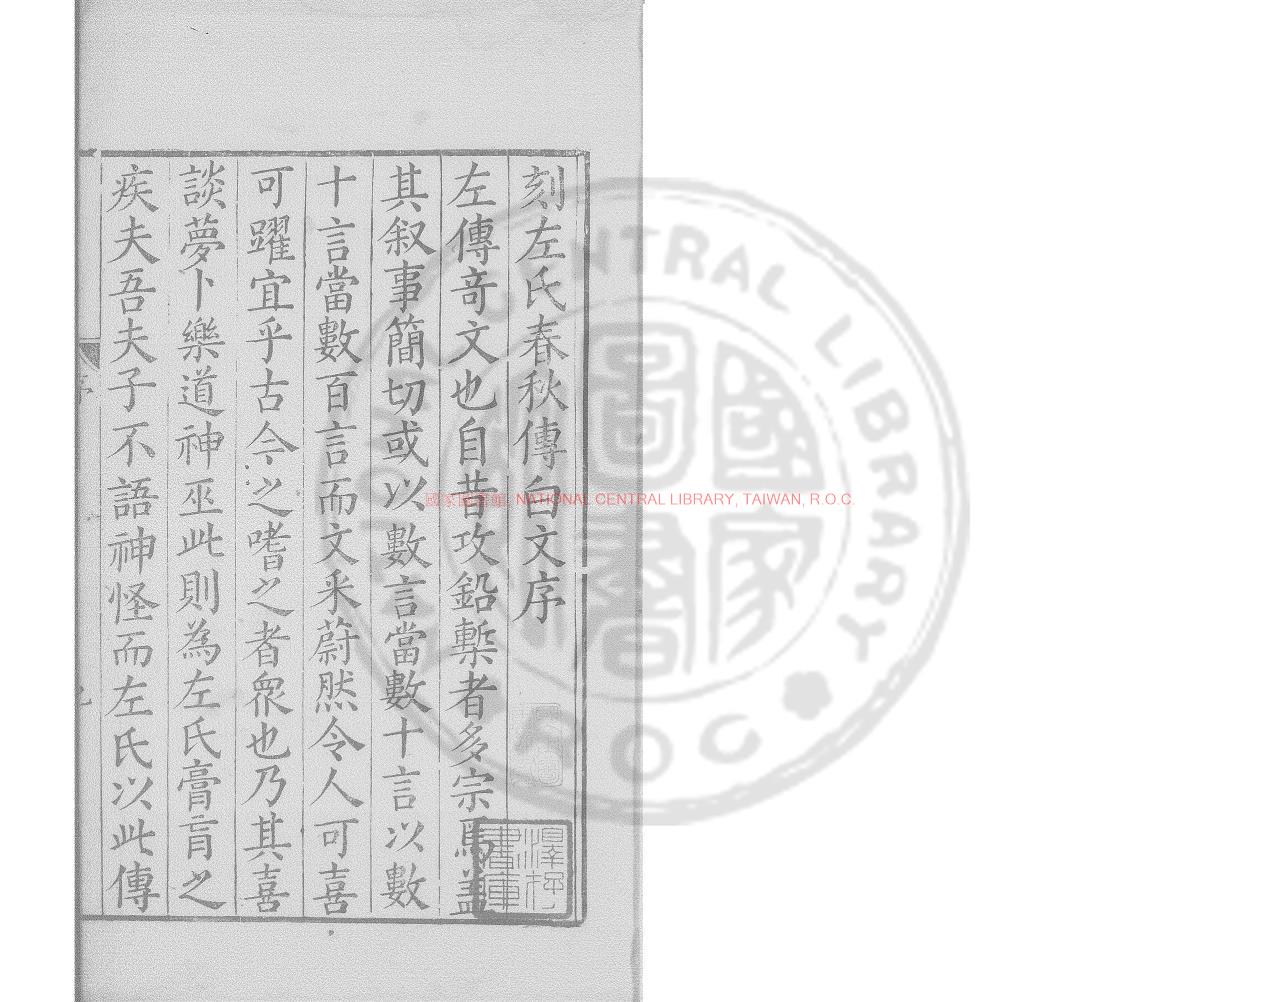 刻左氏春秋傳白文序
左傳竒文也自昔攻鉛槧者多宗焉盖
其叙事簡切或以數言當數十言以數
十言當數百言而文采蔚然令人可喜
可躍宜乎古今之嗜之者衆也乃其喜
談夢卜樂道神巫此則為左氏膏肓之
疾夫吾夫子不語神怪而左氏以此傳
國家圖書館, NATIONAL CENTRAL LIBRARY, TAIWAN, R.O.C.
CENTRAL LIBRARY
ROC
國家圖書
澤存書庫